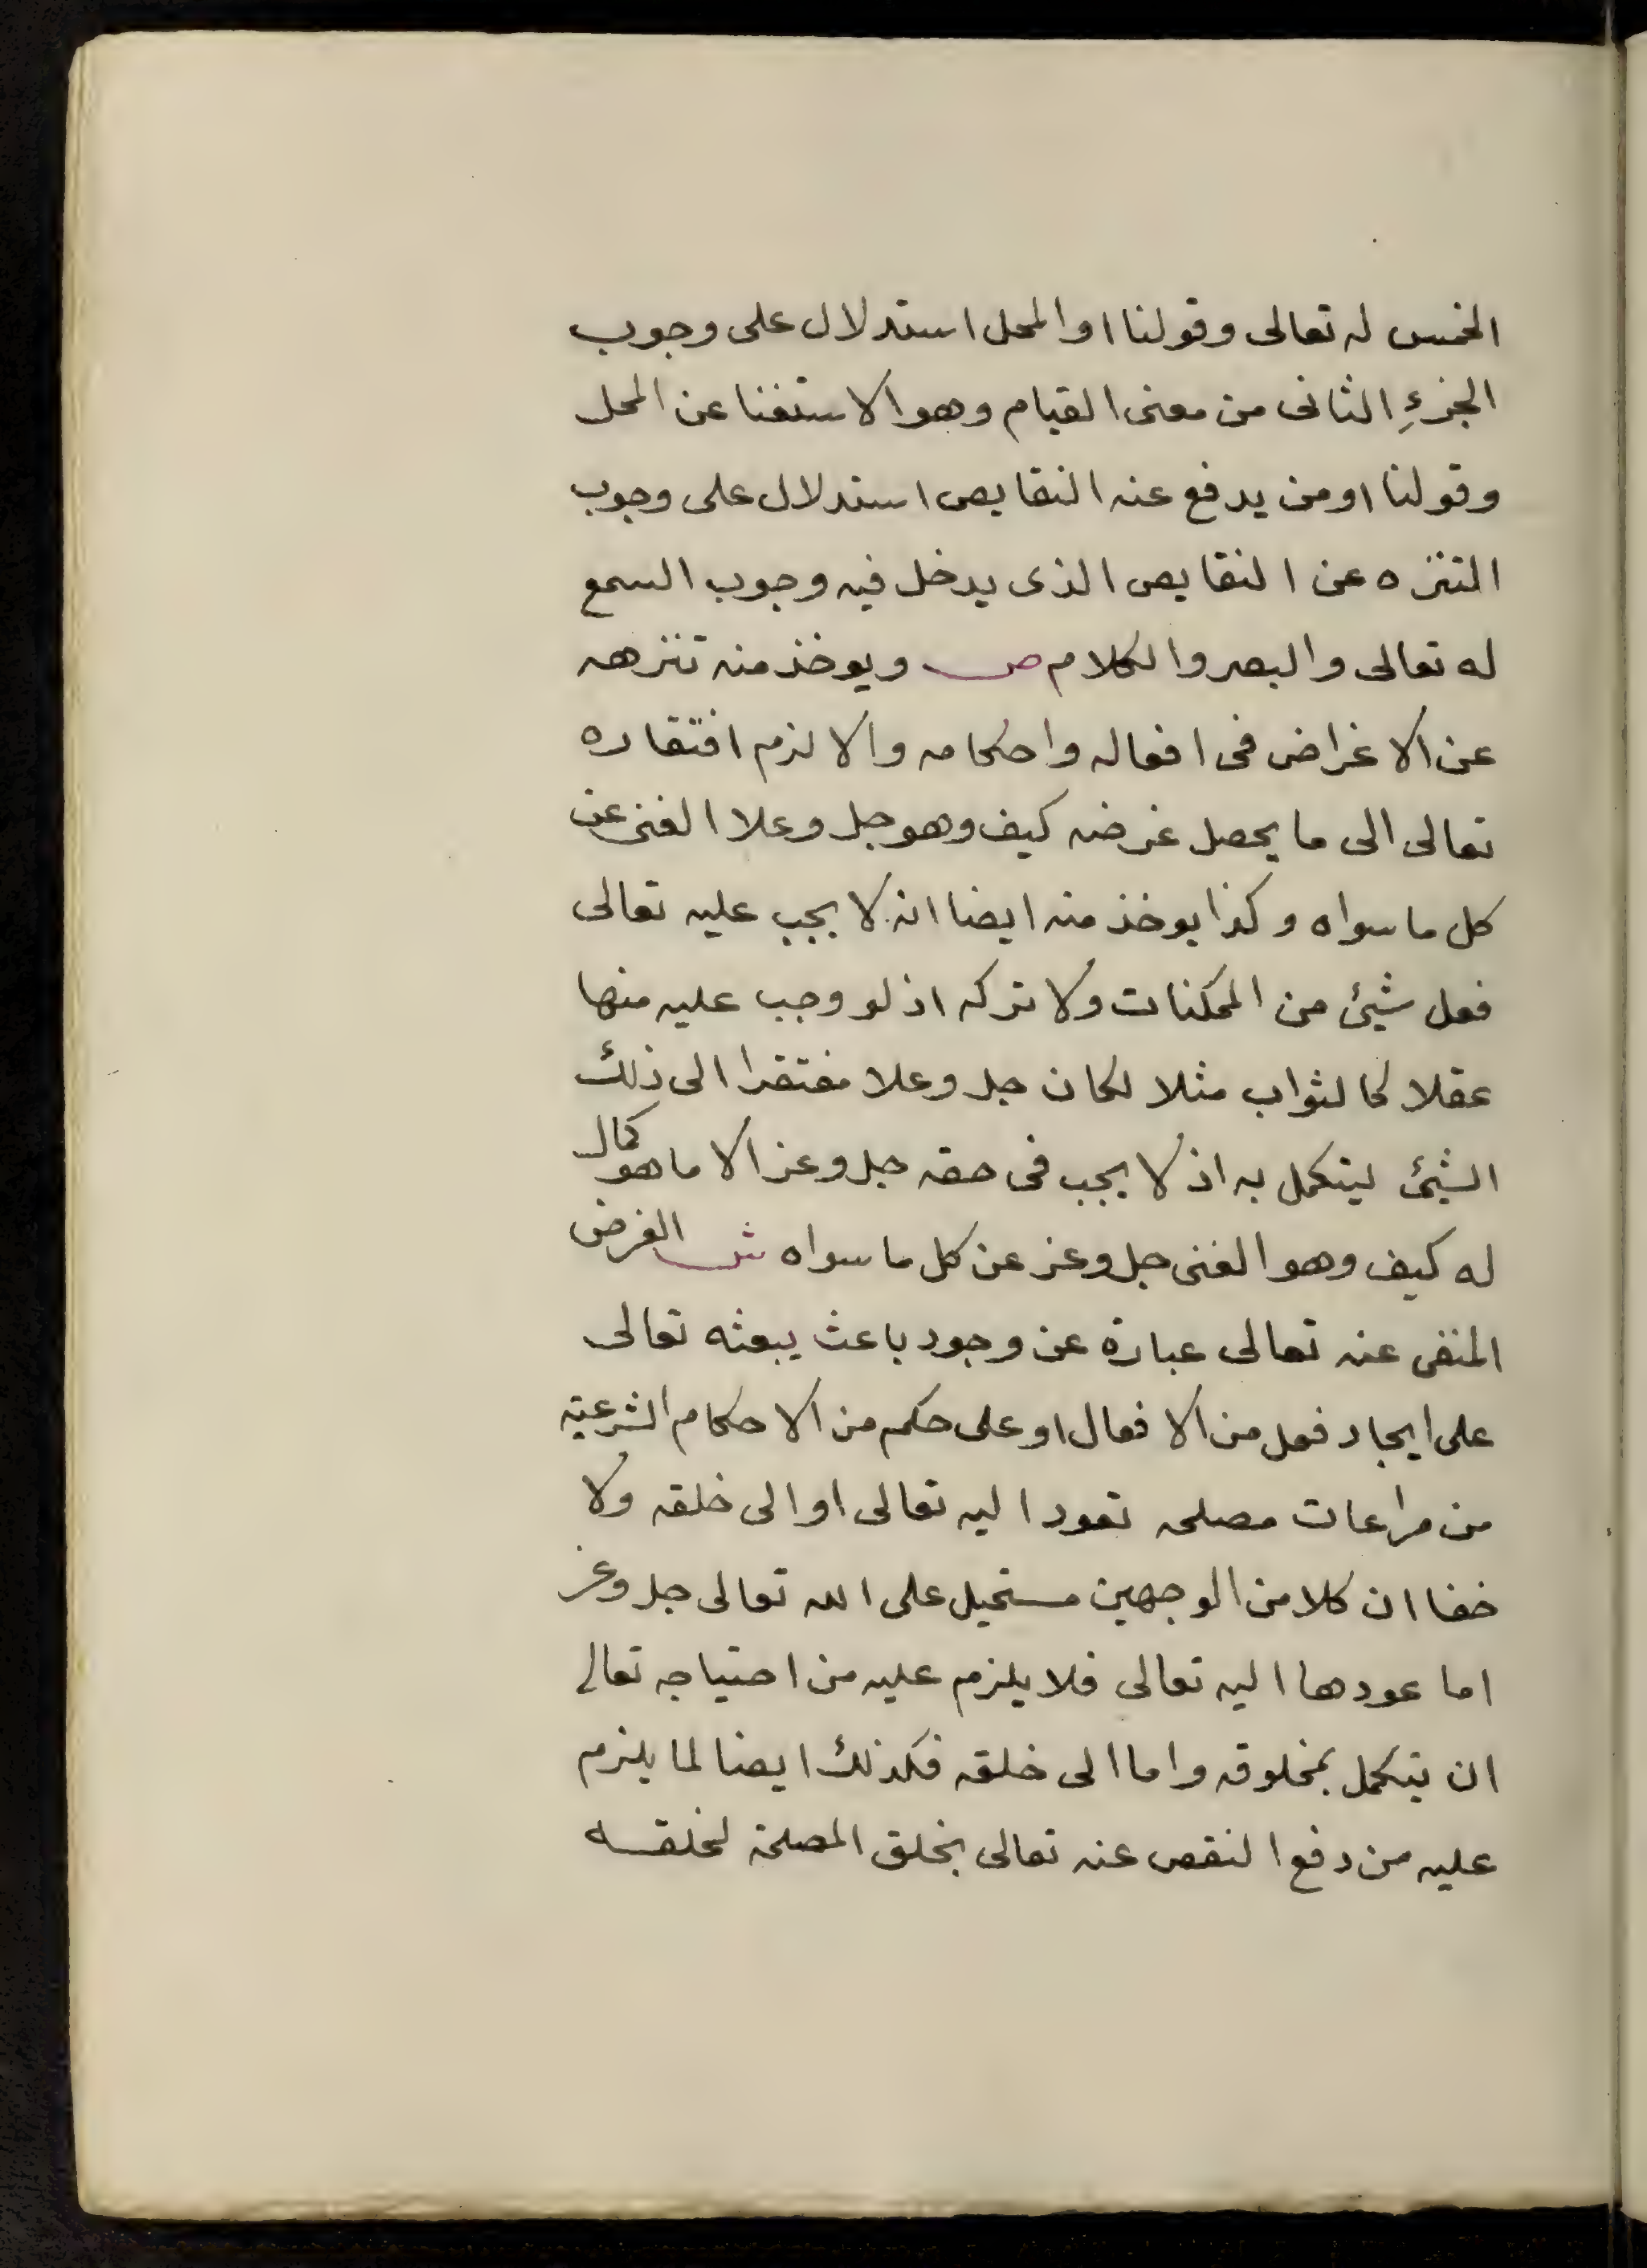 الخمس له تعالى وقولنا او المحل استدلال على وجوب
الجزءِ الثانى من معنى القيام وهو الاستغنا عن المحل
وقولنا او من يدفع عنه النقايص استدلال على وجوب
التنزه عن النقايص الذى يدخل فيه وجوب السمع
له تعالى والبصر والكلام ص ويوخذ منه تنزهه
عن الاغراض فى افعاله واحكامه والا لزم افتقاره
تعالى الى ما يحصل غرضه كيف وهو جل وعلا الغنى عن
كل ما سواه وكذا يوخذ منه ايضا انه لا يجب عليه تعالى
فعل شيئ من الممكنات ولا تركه اذ لو وجب عليه منها
عقلا كالثواب مثلا لكان جل وعلا مفتقرا الى ذلك
الشيئ ليتكمل به اذ لا يجب فى حقه جل وعز الا ما هو كمال
له كيف وهو الغنى جل وعز عن كل ما سواه ش الغرض
المنفى عنه تعالى عبارة عن وجود باعث يبعثه تعالى
على ايجاد فعل من الافعال او على حكم من الاحكام الشرعية
من مراعات مصلحه تعود اليه تعالى او الى خلقه ولا
خفا ان كلا من الوجهين مستحيل على الله تعالى جل وعز
اما عودها اليه تعالى فلا يلزم عليه من احتياجه تعالى
ان يتكمل بمخلوقه واما الى خلقه فكذلك ايضا لما يلزم
عليه من دفع النقص عنه تعالى بخلق المصلحة لخلقه